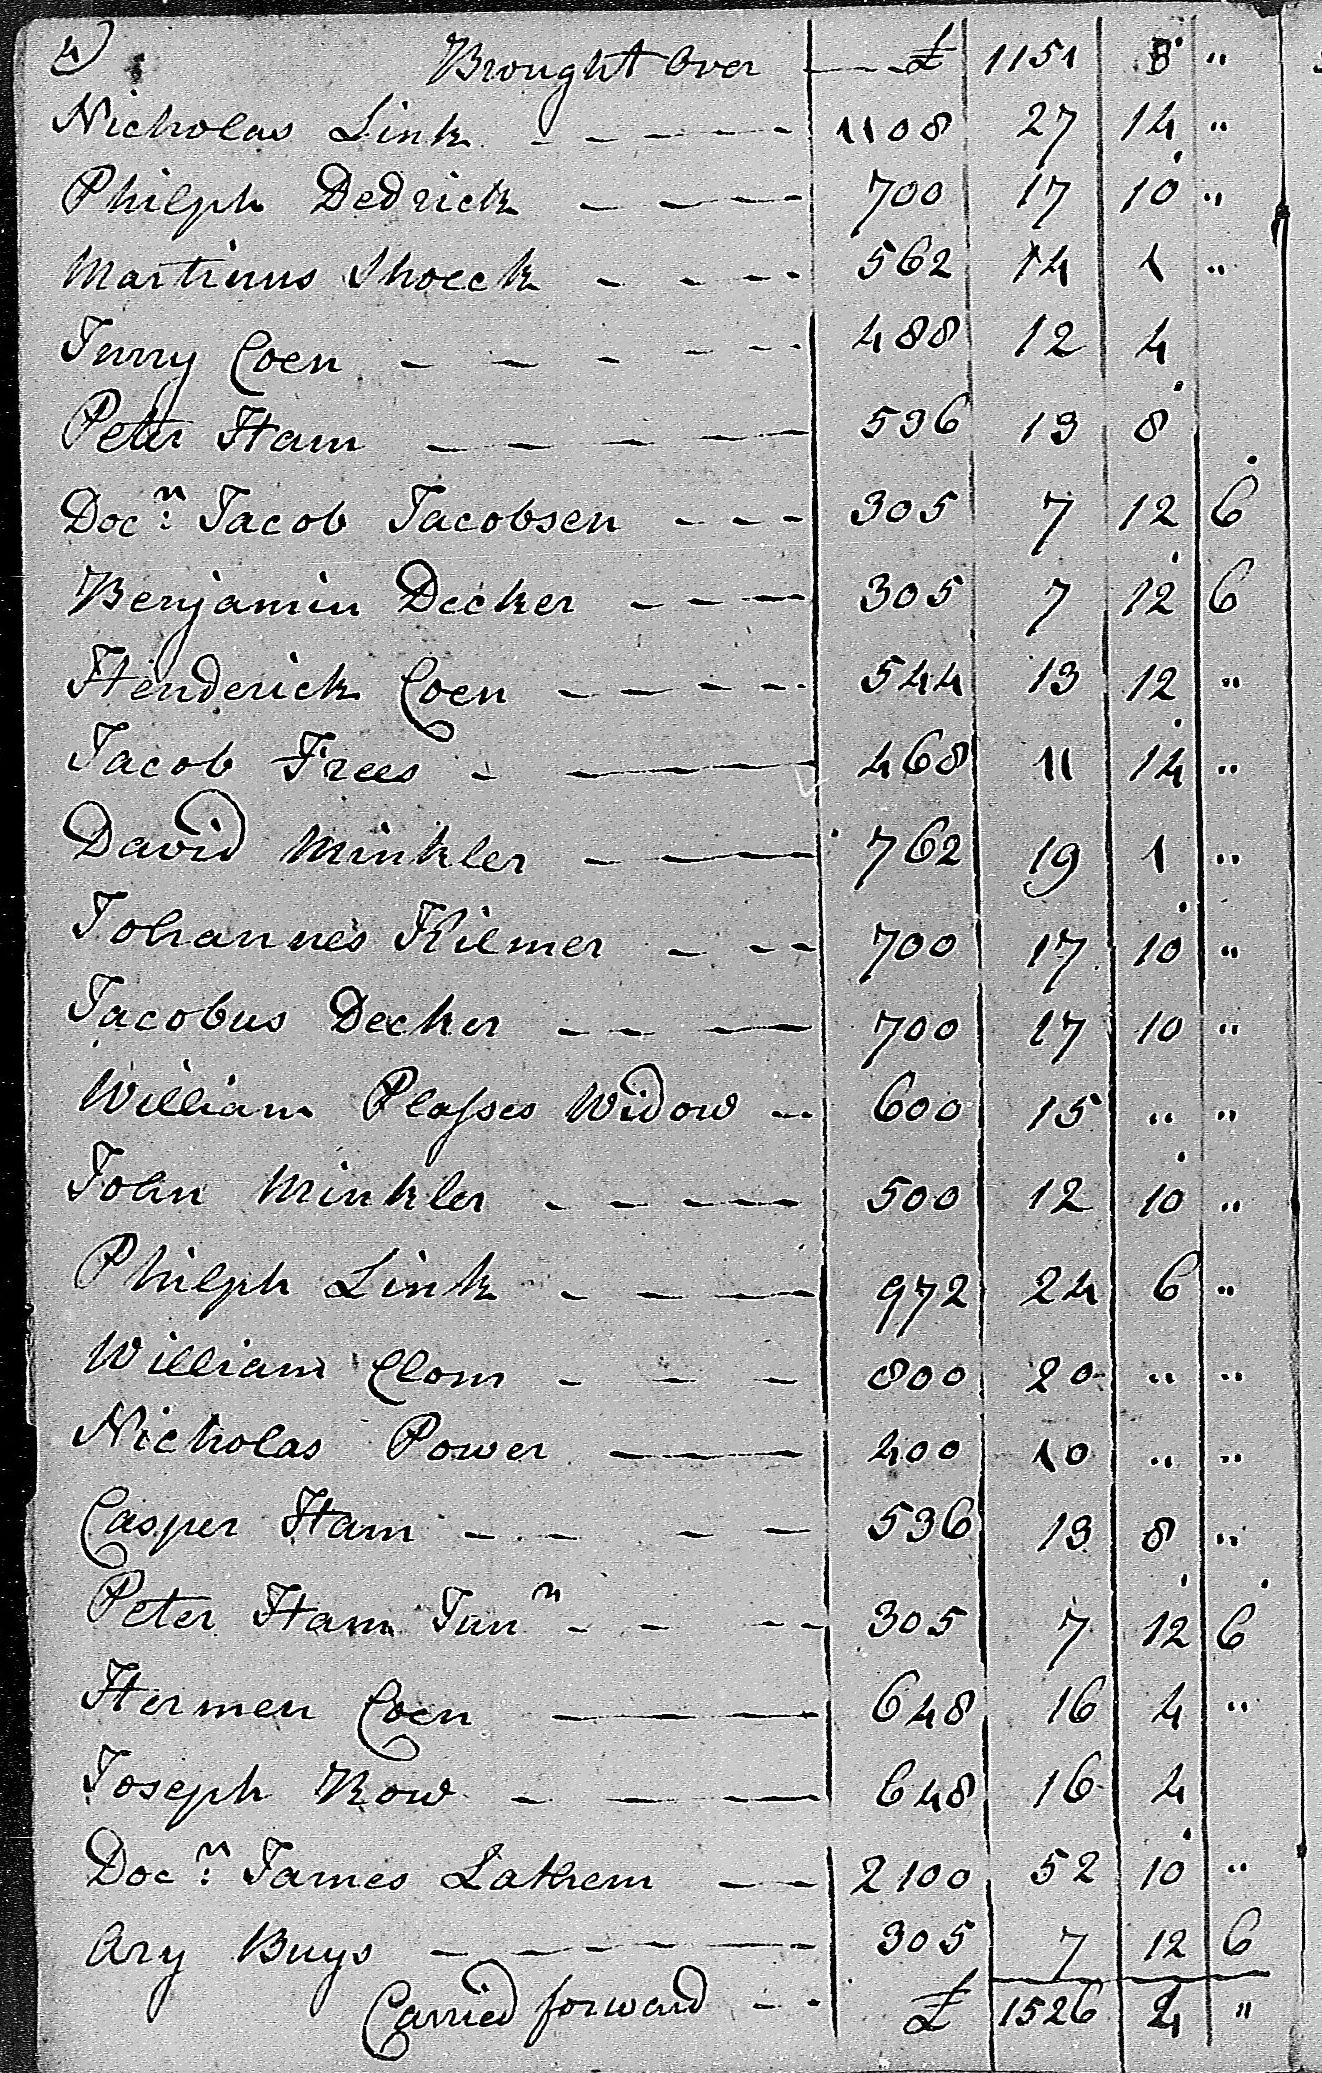 4) Brought Over £ 1151 8 "
Nicholas Link 1108 27 14 "
Philph Dedrick 700 17 10 "
Martinus Shoeck 562 14 1 "
Jurry Coen 488 12 4
Peter Ham 536 13 8
Docr: Jacob Jacobsen 305 7 12 6
Benjamin Decker 305 7 12 6
Henderick Coen 544 13 12 "
Jacob Frees 468 11 14 "
David Minkler 762 19 1 "
Johannes Kilmer 700 17 10 "
Jacobus Decker 700 17 10 "
William Plasses Widow 600 15 " "
John Minkler 500 12 10 "
Philph Link 972 24 6 "
William Clom 800 20 " "
Nicholas Power 400 10 " "
Casper Ham 536 13 8 "
Peter Ham Junr 305 7 12 6
Hermen Coen 648 16 4 "
Joseph Row 648 16 4
Docr: James Lakrem 2100 52 10 "
Ary Buys 305 7 12 6
Carried forward £ 1526 4 "